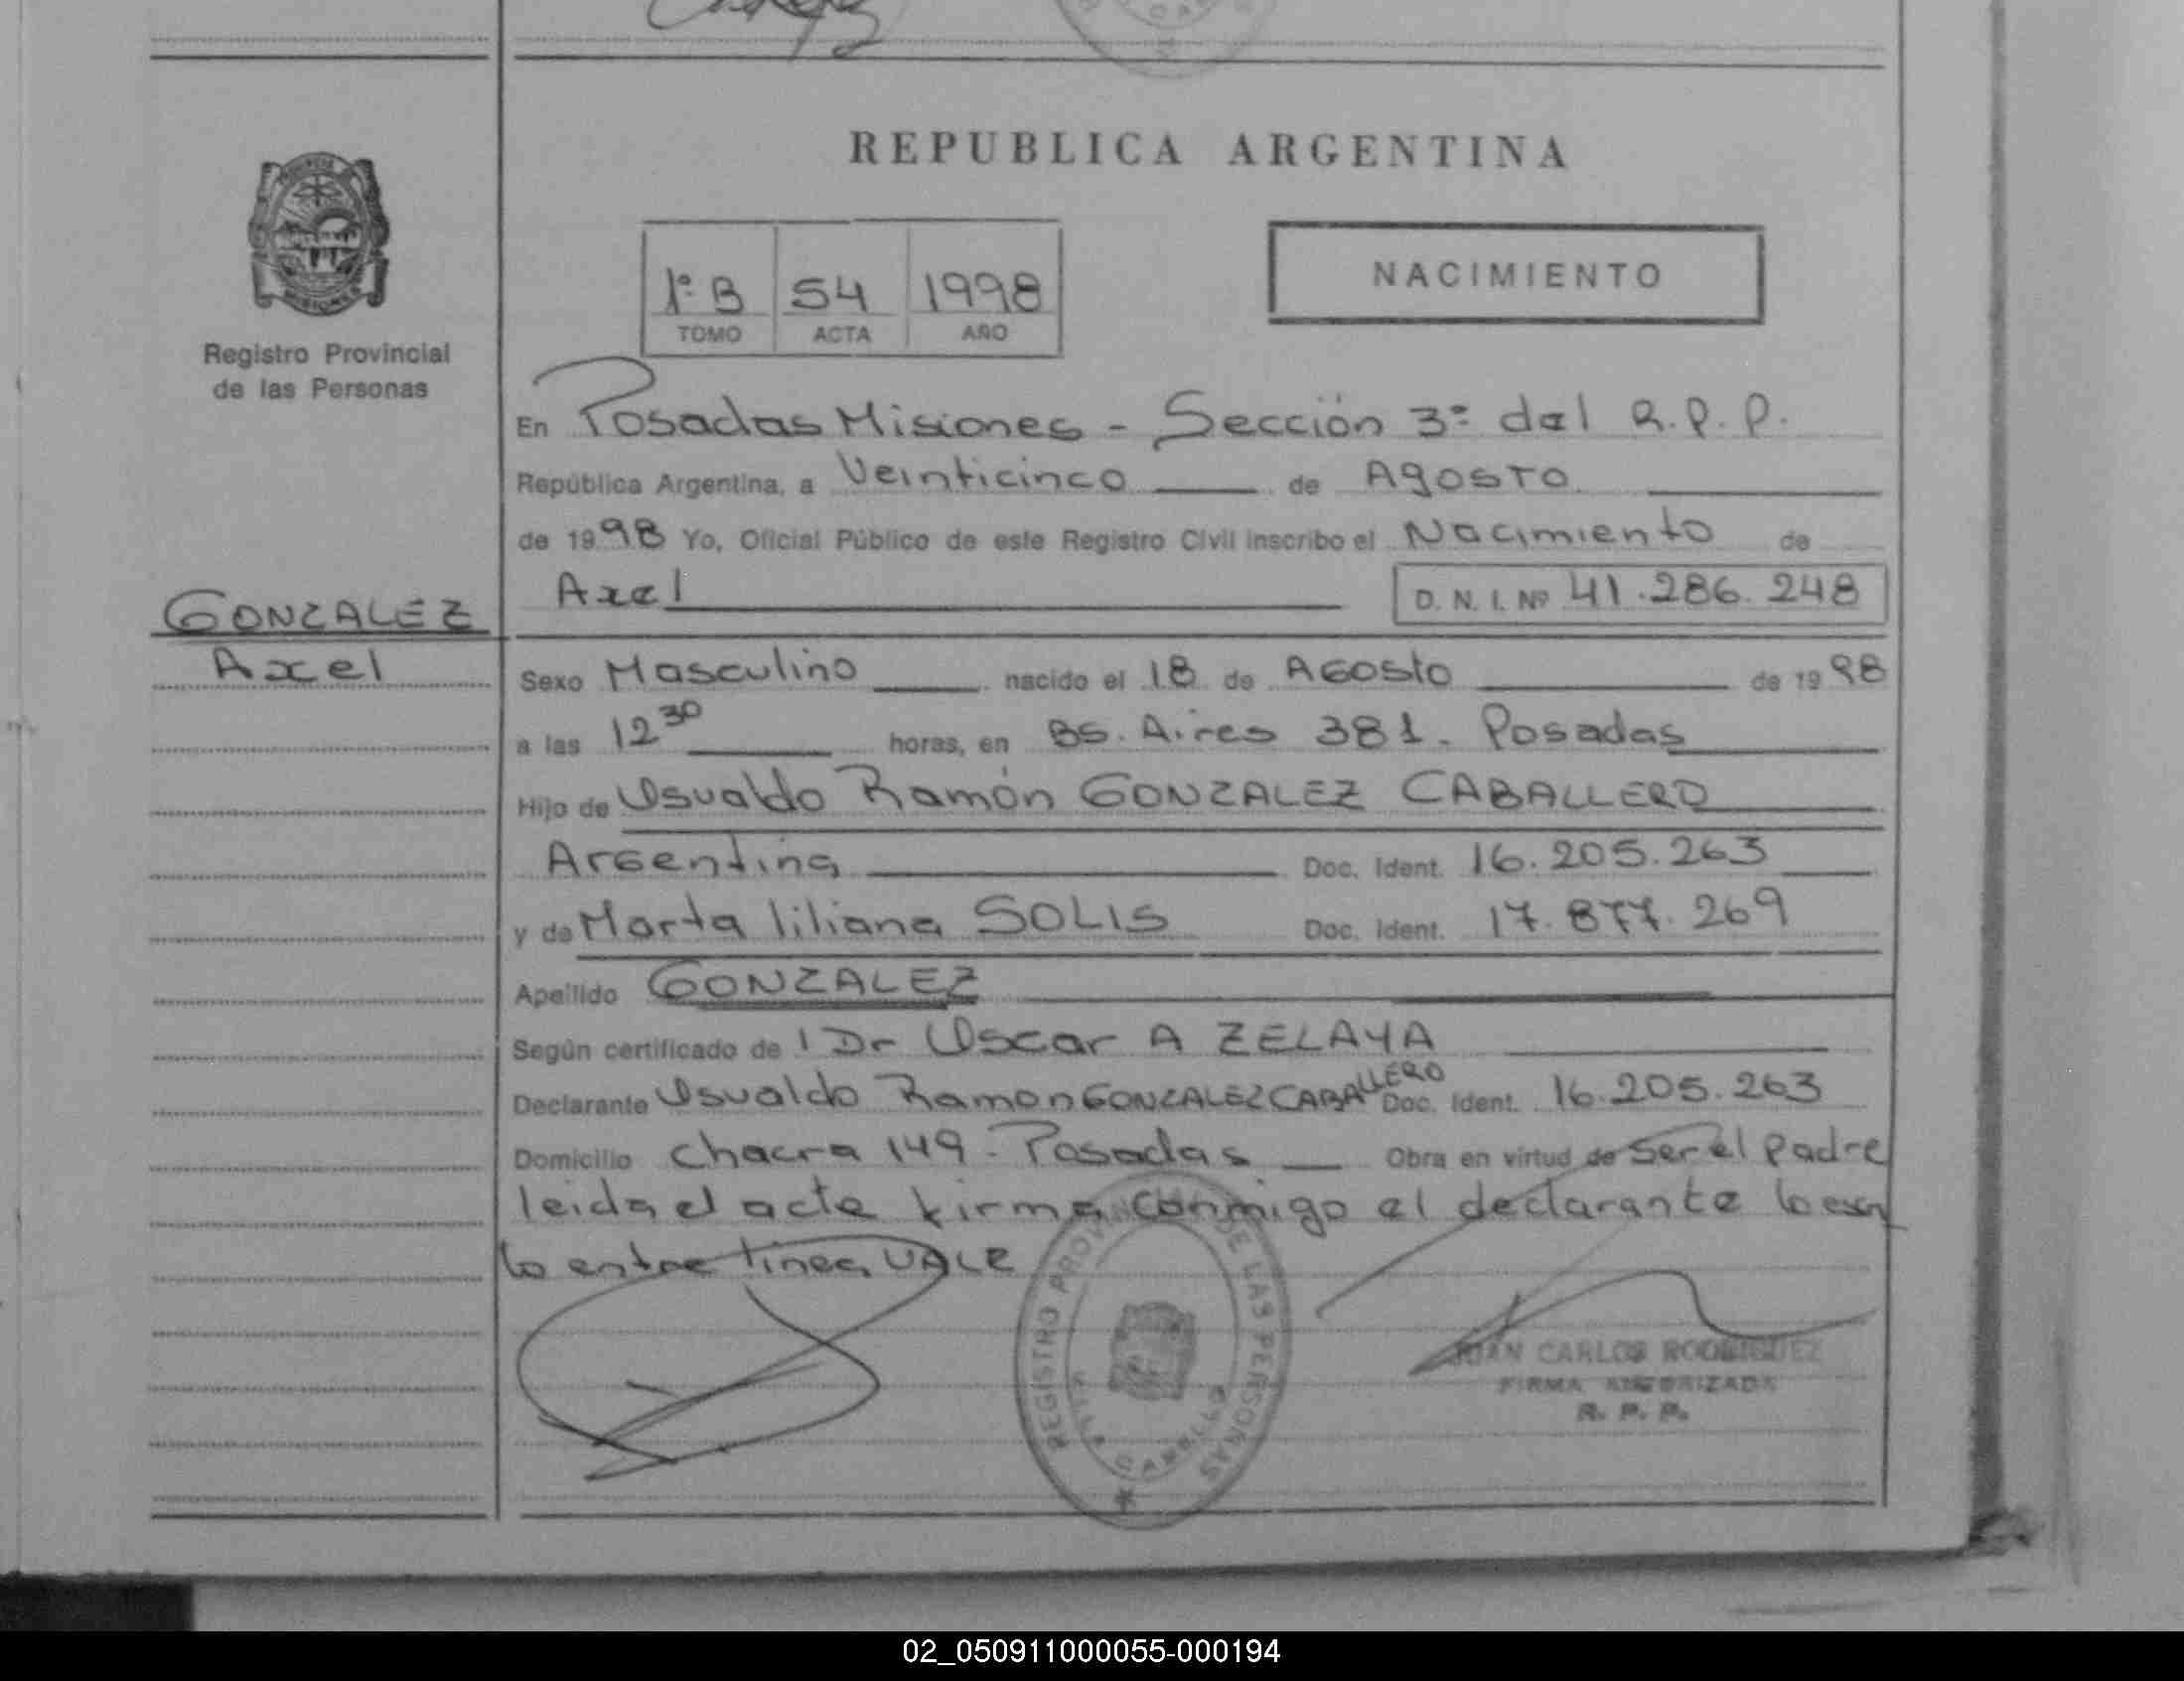 REPUBLICA ARGENTINA
1º B 54 1998
TOMO ACTA AÑO
NACIMIENTO
MISIONES
Registro Provincial
de las Personas
En Posadas Misiones - Sección 3º del R.P.P.
República Argentina, a Veinticinco de Agosto
de 1998 Yo, Oficial Público de este Registro Civil inscribo el Nacimiento de
Axel D. N. I. Nº 41.286.248
GONZALEZ
Axel
Sexo Masculino nacido el 18 de Agosto de 1998
a las 12 30 horas, en Bs. Aires 381. Posadas
Hijo de Osvaldo Ramón GONZALEZ CABALLERO
Argentina Doc. Ident. 16.205.263
y de Marta liliana SOLIS Doc. Ident. 17.877.269
Apellido GONZALEZ
Según certificado de l Dr Oscar A ZELAYA
Declarante Osvaldo Ramon GONZALEZ CABALLERO Doc. Ident. 16.205.263
Domicilio chacra 149 - Posadas Obra en virtud de Ser el padre
leida el acta firma conmigo el declarante
lo entre linea VALE
REGISTRO DE LAS PERSONAS
JUAN CARLOS RODRIGUEZ
FIRMA AUTORIZADA
R. P. P.
02_050911000055-000194